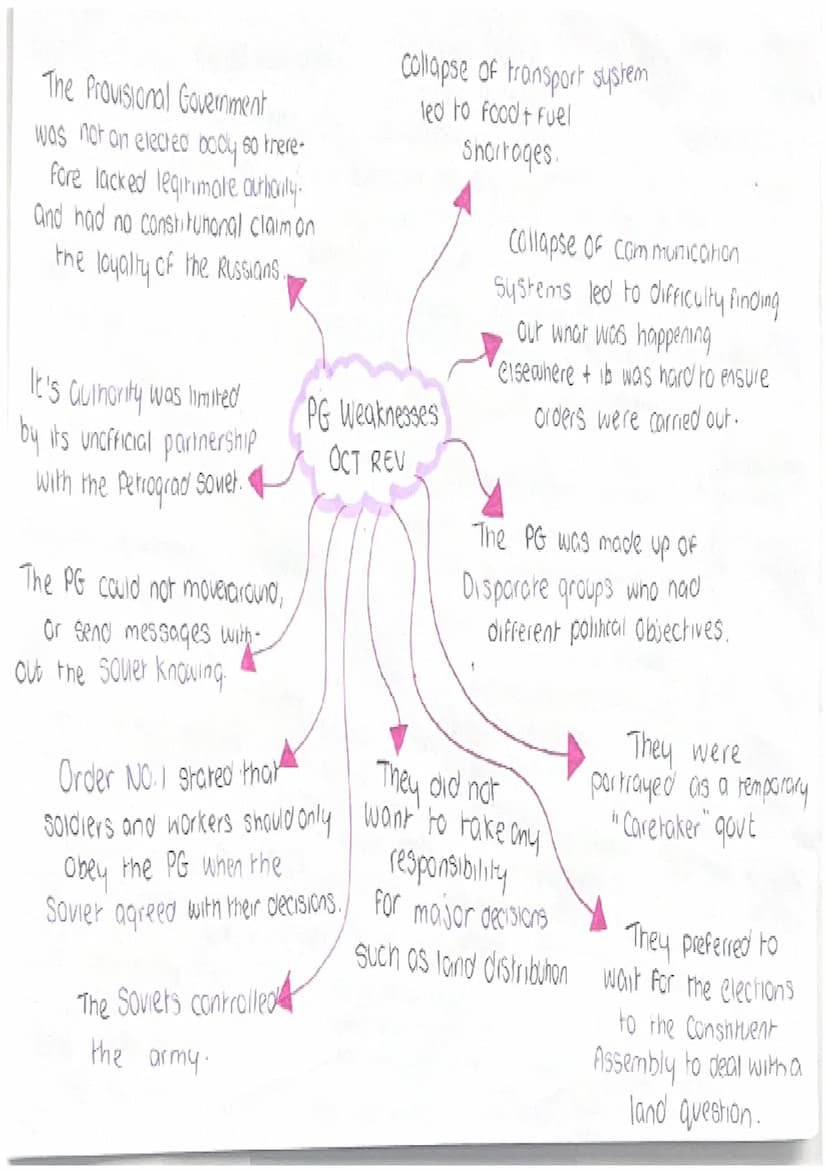 The Provisional Government
was not an elected body so there-
fore lacked legitimate authority.
and had no constitutional claim on
the loyalty of the Russians.
Collapse of transport system
led to food + fuel
shortages.
Collapse of communication
systems led to difficulty finding
out what was happening
elsewhere + it was hard to ensure
orders were carried out.
PG Weaknesses
OCT REV
It's authority was limited
by its unofficial partnership
with the Petrograd Soviet.
The PG was made up of
Disparate groups who had
different political objectives.
The PG could not move around,
or send messages with-
out the Soviet knowing.
Order NO.1 stated that
soldiers and workers should only
obey the PG when the
Soviet agreed with their decisions.
They did not
want to take any
responsibility
for major decisions
such as land distribution
They were
portrayed as a temporary
"Caretaker" govt
The Soviets controlled
the army.
They preferred to
wait for the elections
to the Constituent
Assembly to deal with a
land question.